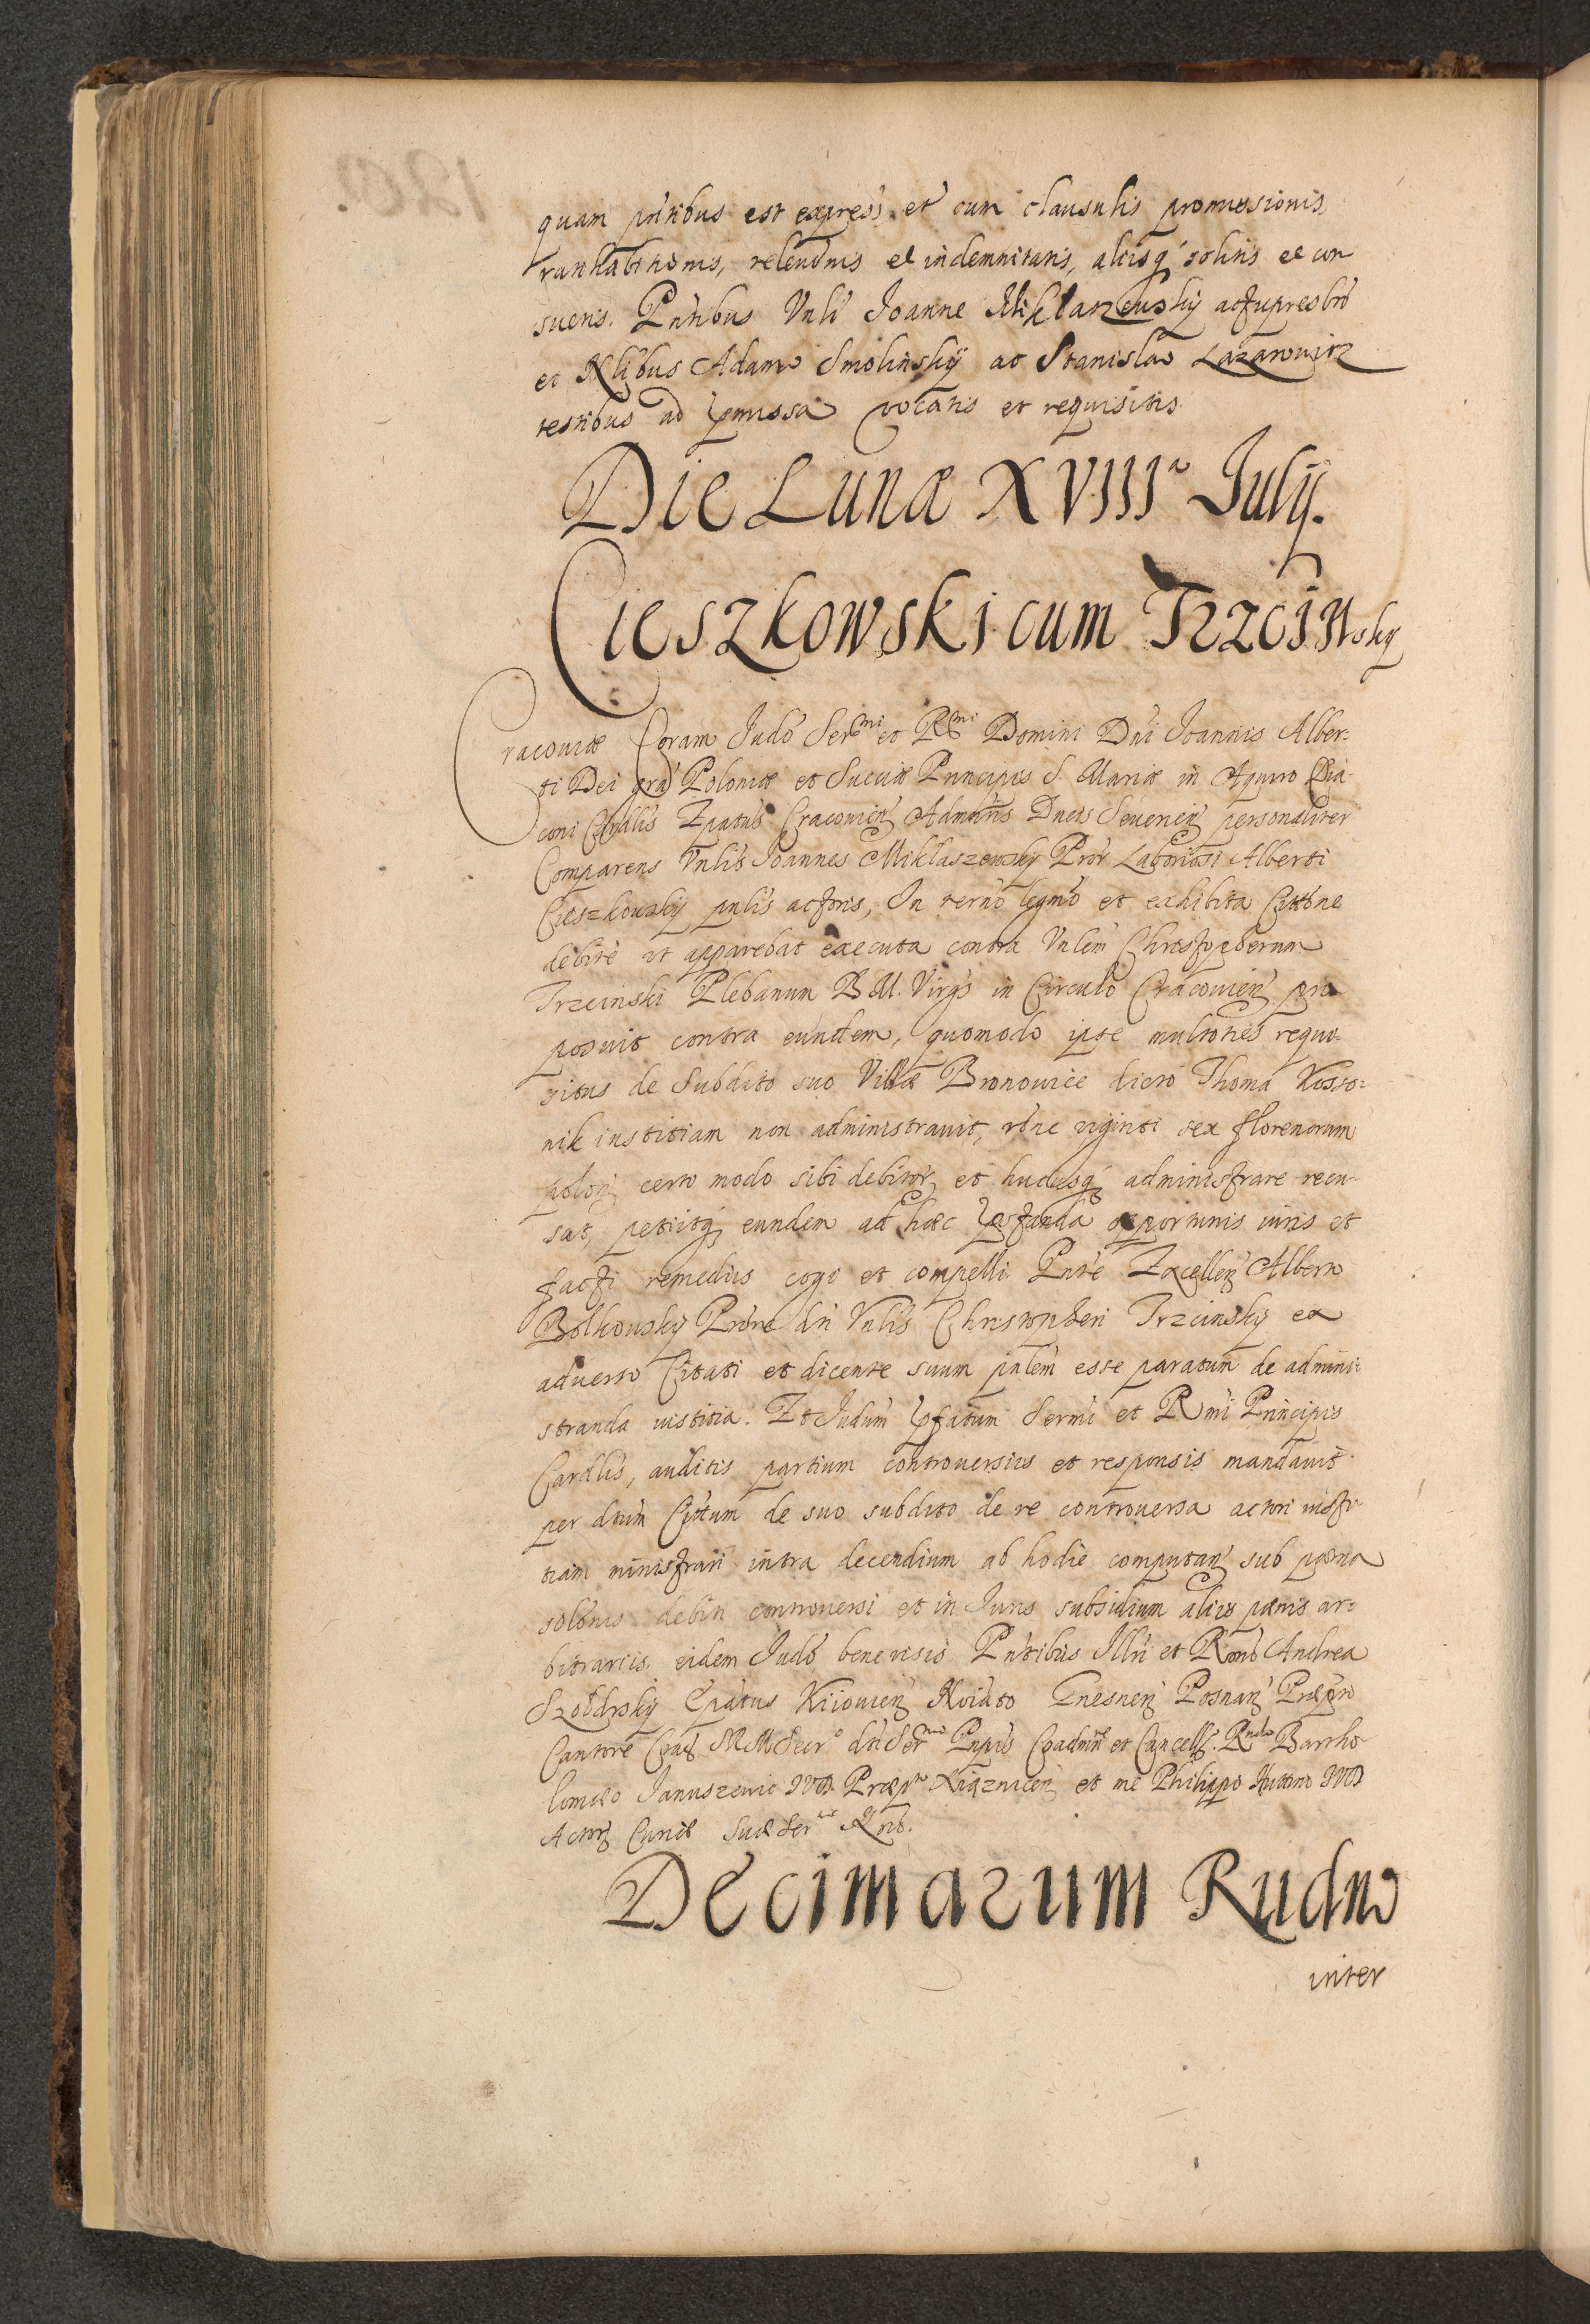 quam pñtibus est express. et cum clausulis promissionis,
ratihabitionis, releuõnis et indemnitatis, aliisq́ solitis et con
suetis. Pñtibus Vnli Joanne Miklaszewskij
et Adamo Smolinskij ac Stanislao Lazarowicz
testibus ad pmissa vocatis et requisitis
Die Lunæ XVIIIa Julij.
Cieszkowski cum Trzcinskij
Cracouiæ Coram Judõ Sermi et Rmi Domini Dñi Joannis Alber-
ti Dei grã Poloniæ et Sueciæ Principis S. Mariæ in Aquiro Dia
coni Cardlis Epatus Cracouieñ Admiñris Ducis Seuerieñ personaliter
Comparens Vnlis Joannes Miklaszewskij Prõr Laboriosi Alberti
Cieszkowskij pnlis actoris, In terno legmõ et exhibita Citõne
debite ut apparebat executa contra Vnlem Christophorum
Trzcinski Plebanum B.M. Virgis in Circulo Cracouieñ pro
posuit contra eundem, quomodo ipse multoties requi-
situs de subdito suo Villæ Bronowice dicto Thoma
nik iustitiam non administrauit, rõne viginti sex florenorum
poloñ certo modo sibi debitor et hucusq́ administrare recu-
sat, petiitq́ eundem ad hæc opportunis iuris et
facti remediis cogi et compelli Pñte Excelleñ Alberto
Bolkouskij Prõre dñi Vnlis Christopheri Trzcinskij ex
aduerso Citati et dicente suum pnlem esse paratum de admini-
stranda iustitia. Et Judium pfatum Sermi et Rmi Principis
Cardlis, auditis partium controuersiis et responsis mandauit
per dtum Cittum de suo subdito de re controuersa actori iusti-
tiam ministrari intra decendium ab hodie computañ sub pœna
solõnis debiti controuersi et in Juris subsidium aliis pœnis ar-
bitrariis eidem Judõ bene visis Pñtibus Illri et Rmo Andrea
Szoldrskij Epatus Kiiouieñ Gnesneñ Posnañ Præpto
Cantore S.R.M. Secro dti Sermi Coadmiñ et Cancell. Rndo Bartho-
lomæo Januszewic JVD. Præpto Xiązniceñ et me Philippo JVD
Actor Curiæ Suæ Sertis
Decimarum Rudno
inter